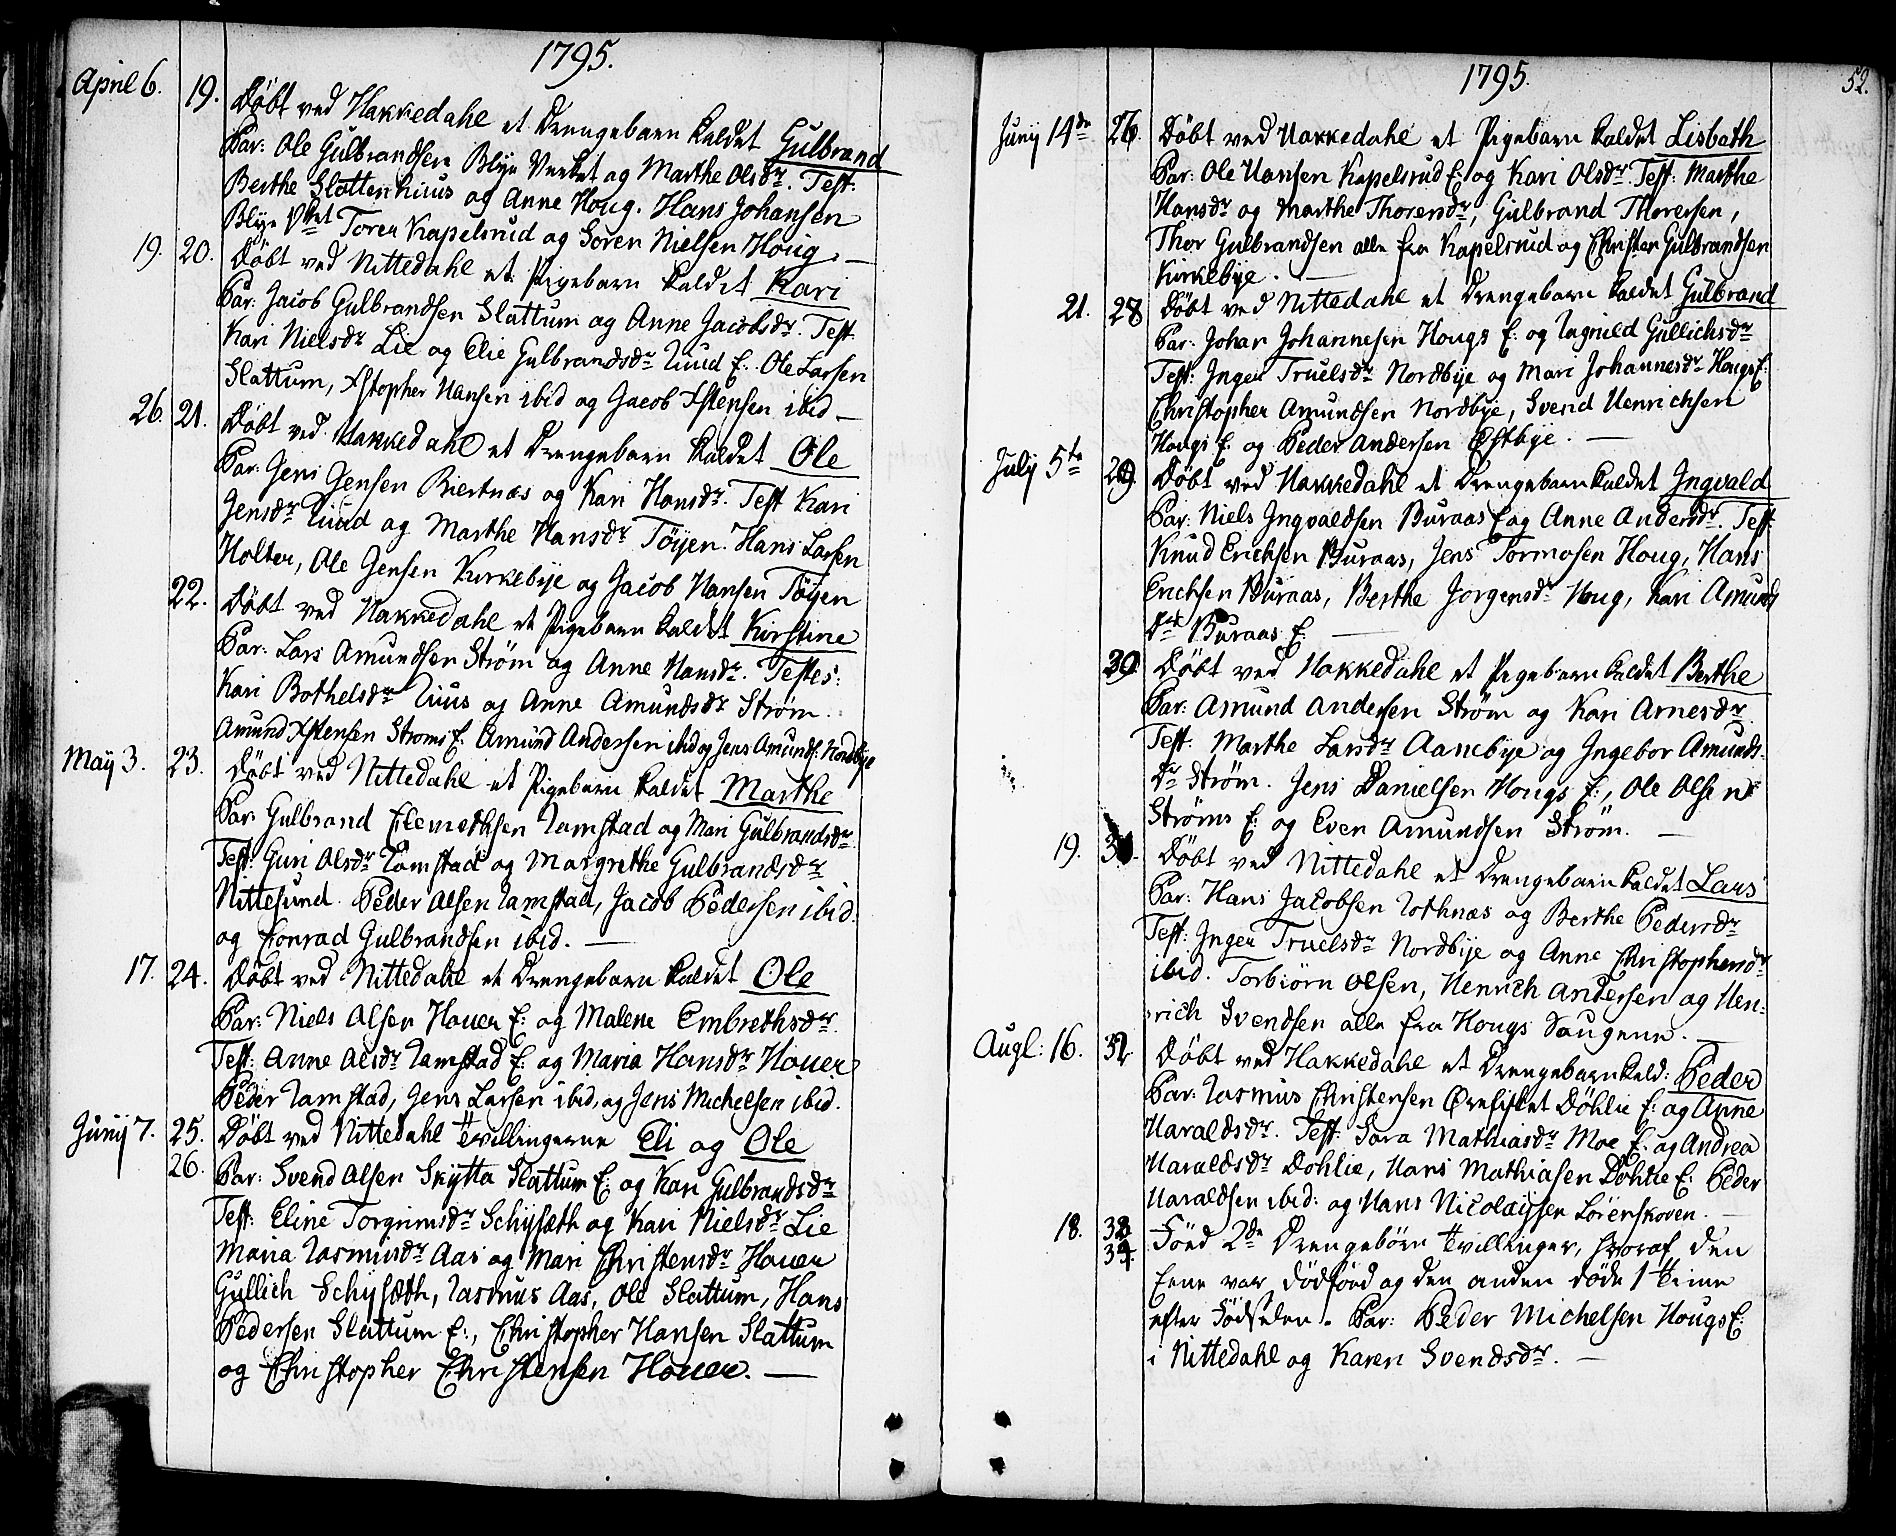 1795.
April 6. 19. Döbt ved Hakkedahl et Drengebarn kaldet Gulbrand
Par: Ole Gulbrandsen Blye Verket og Marthe Olsdr. Test:
Berthe Slattenhuus og Anne Houg. Hans Johansen
Blye Vket Toren Kapelsrud og Soren Nielsen Houg. —
19. 20. Döbt ved Nittedahl et Pigebarn kaldet Kari
Par: Jacob Gulbrandsen Slattum og Anne Jacobsdr. Test:
Kari Nielsdr Lie og Elie Gulbrandsdr Ruud E. Ole Larsen
Slattum, Xstopher Hansen ibid og Jacob Xstensen ibid —
26. 21. Döbt ved Hakkedahl et Drengebarn kaldet Ole
Par: Jens Jensen Biertnæs og Kari Hansdr. Test Kari
Jensdr Ruud og Marthe Hansdr Töyen. Hans Larsen
Holter, Ole Jensen Kirkebye og Jacob Hansen Töyen
22. Döbt ved Hakkedahl et Pigebarn kaldet Kirstine
Par: Lars Amundsen Ström og Anne Hansdr. Testes:
Kari Bothelsdr Ruus og Anne Amundsdr Ström.
Amund Xstensen Stroms E. Amund Andersen ibid og Jens Amunds. Nordbye
May 3. 23. Döbt ved Nittedahl et Pigebarn kaldet Marthe
Par: Gulbrand Clemethsen Ramstad og Mari Gulbrandsdr.
Test: Guri Olsdr Ramstad og Margrethe Gulbrandsdr
Nittesund. Peder Olsen Ramstad, Jacob Pedersen ibid.
og Conrad Gulbrandsen ibid. —
17. 24. Döbt ved Nittedahl et Drengebarn kaldet Ole
Par: Niels Olsen Houer E: og Malene Embrethsdr.
Test: Anne Olsdr Ramstad E: og Maria Hansdr Houer
Peder Ramstad, Jens Larsen ibid, og Jens Michelsen ibid.
Junij 7. 25. Döbt ved Nittedahl Tvillingerne Eli og Ole
26. Par: Svend Olsen Skytta Slattum E: og Kari Gulbrandsdr
Test: Eline Torgrimsdr Schysæth og Kari Nielsdr Lie
Maria Rasmusdr Aas og Mari Christensdr Houer
Gullich Schysæth, Rasmus Aas, Ole Slattum, Hans
Pedersen Slattum E:, Christopher Hansen Slattum
og Christopher Christensen Houer. —
1795. 52.
Junij 14de 26. Döbt ved Hakkedahl et Pigebarn kaldet Lisbeth
Par: Ole Hansen Kapelsrud E: og Kari Olsdr. Test: Marthe
Hansdr og Marthe Thorensdr, Gulbrand Thoresen,
Thor Gulbrandsen alle fra Kapelsrud og Christen Gulbrandsen
Kirkebye. —
21. 28 Döbt ved Nittedahl et Drengebarn kaldet Gulbrand
Par: Johan Johannesen Hougs E: og Ragnild Gullichsdr
Test: Inger Truelsdr Nordbye og Mari Johannesdr Hougs E:
Christopher Amundsen Nordbye, Svend Henrichsen
Hougs E: og Peder Andersen Østbye. —
July 5te 29. Döbt ved Hakkedahl et Drengebarn kaldet Ingvald
Par: Niels Ingvaldsen Buraas E og Anne Andersdr. Test:
Knud Erichsen Buraas, Jens Tormosen Houg, Hans
Erichsen Buraas, Berthe Jorgensdr Houg, Kari Amund
Dr Buraas E. —
30 Döbt ved Hakkedahl et Pigebarn kaldet Berthe
Par: Amund Andersen Ström og Kari Arnesdr
Test: Marthe Larsdr Aanebye og Ingebor Amunds-
Dr Ström. Jens Danielsen Hougs E:, Ole Olsen
Ströms E: og Even Amundsen Ström. —
19. Döbt ved Nittedahl et Drengebarn kaldet Lars
Par: Hans Jacobsen Rothnæs og Berthe Pedersdr
Test: Inger Truelsdr Nordbye og Anne Christophersdr
ibid. Torbiörn Olsen, Henrich Andersen og Hen-
rich Svendsen alle fra Hougs Saugene. —
Augl: 16. 32 Döbt ved Hakkedahl et Drengebarn kald: Peder
Par: Rasmus Christensen Ørefisket Döhlie E: og Anne
Haraldsdr. Test: Sara Mathiasdr Moe E: og Andrea
Haraldsdr Dohlie, Hans Mathiasen Döhlie E: Peder
Haraldsen ibid: og Hans Nicolaysen Lörenskoven. —
18. 33 Föed 2de Drengebörn Tvillinger, hvoraf den
34. Eene var dödföd og den anden döde 1 Time
efter Födselen. Par: Peder Michelsen Hougs E:
i Nittedahl og Karen Svendsdr. —